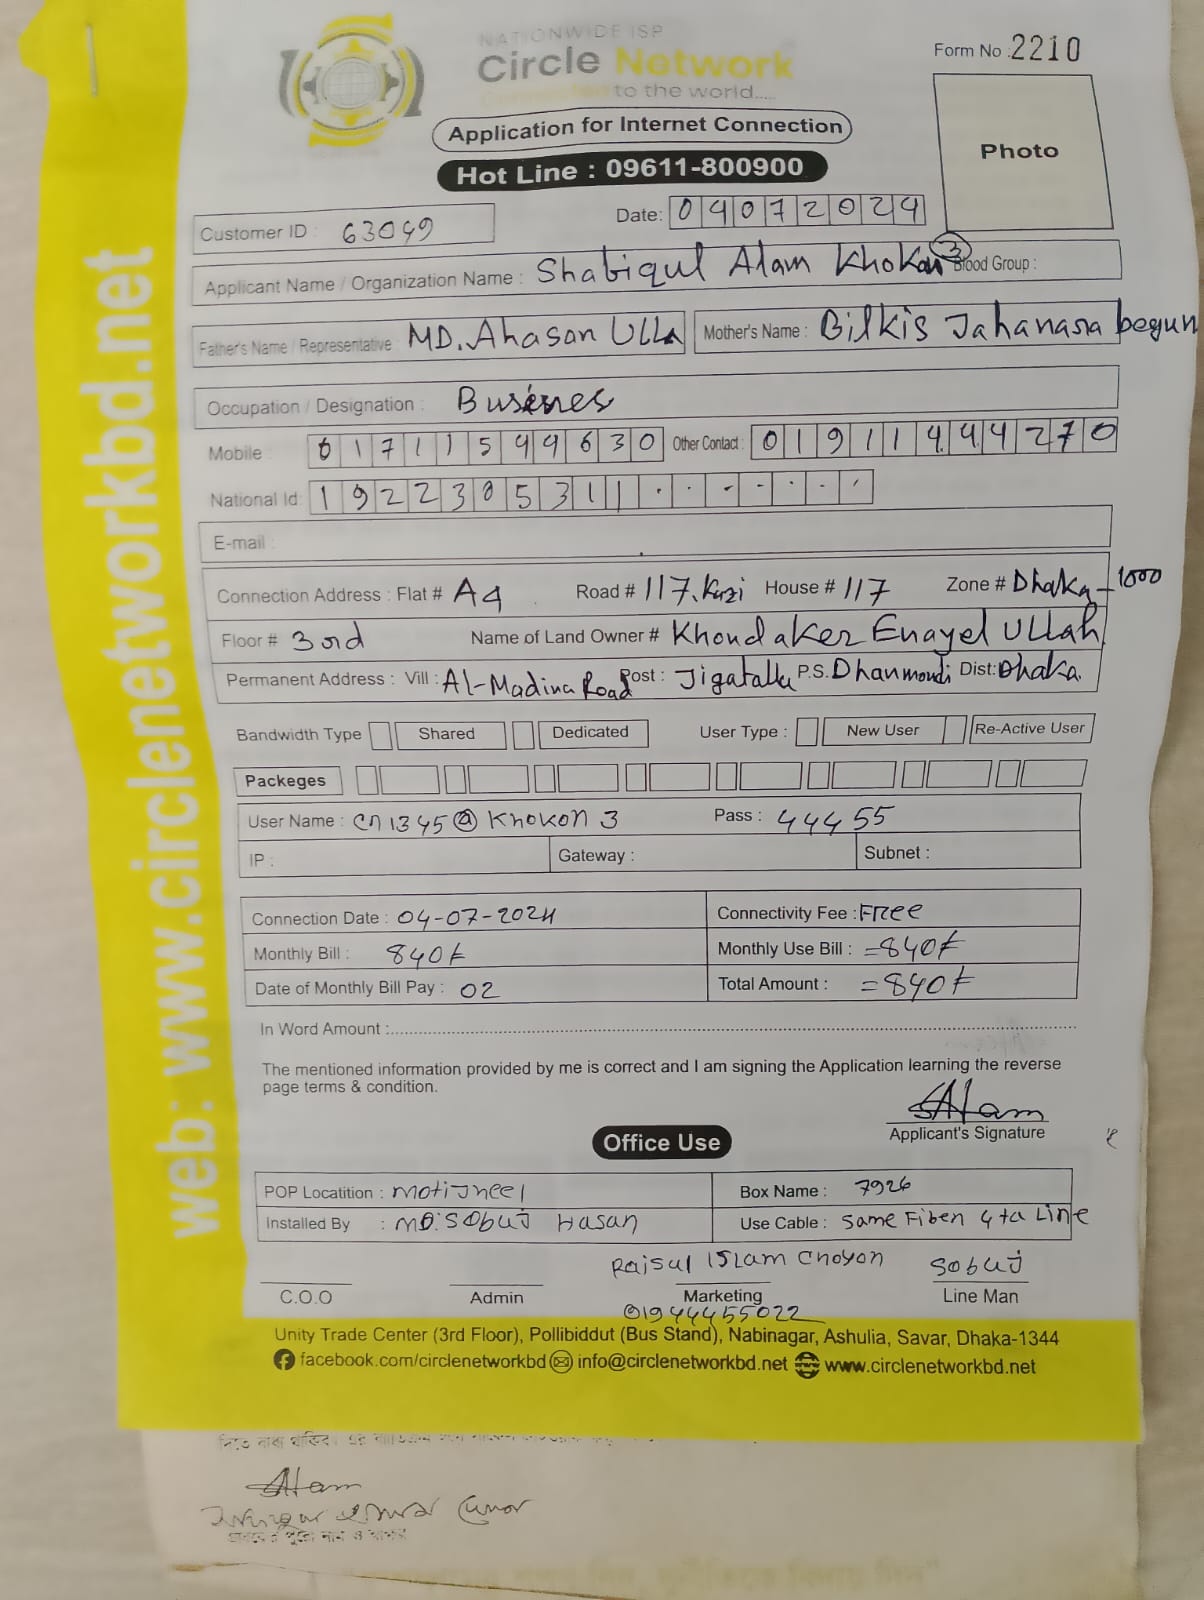 NATIONWIDE ISP
Circle Network
to the world.....
Form No : 2210
Application for Internet Connection
Hot Line : 09611-800900
Photo
Customer ID : 63049
Date: 04072024
Applicant Name / Organization Name : Shabiqul Alam Khokan 3 Blood Group :
Father's Name / Representative : MD. Ahasan Ulla Mother's Name : Bilkis Jahanara begun
Occupation / Designation : Busines
Mobile : 01711599630 Other Contact : 01911444270
National Id: 1922305311
E-mail :
Connection Address : Flat # A4 Road # 117, Kazi House # 117 Zone # Dhaka-1000
Floor # 3rd Name of Land Owner # Khondaker Enayet Ullah
Permanent Address : Vill : Al-Madina Road Post : Jigatalla P.S. Dhanmondi Dist: Dhaka
Bandwidth Type Shared Dedicated User Type : New User Re-Active User
Packeges
User Name : cn1345@Khokon3 Pass : 44455
IP : Gateway : Subnet :
Connection Date : 04-07-2024 Connectivity Fee : Free
Monthly Bill : 840/- Monthly Use Bill : =840/-
Date of Monthly Bill Pay : 02 Total Amount : =840/-
In Word Amount :
The mentioned information provided by me is correct and I am signing the Application learning the reverse
page terms & condition.
SAlam
Applicant's Signature
Office Use
POP Locatition : Motijheel Box Name : 7926
Installed By : MD. Sobuj Hasan Use Cable : Same Fiber 4 ta Line
Raisul Islam Choyon Sobuj
C.O.O Admin Marketing Line Man
01944455022
Unity Trade Center (3rd Floor), Pollibiddut (Bus Stand), Nabinagar, Ashulia, Savar, Dhaka-1344
facebook.com/circlenetworkbd info@circlenetworkbd.net www.circlenetworkbd.net
web: www.circlenetworkbd.net
SAlam